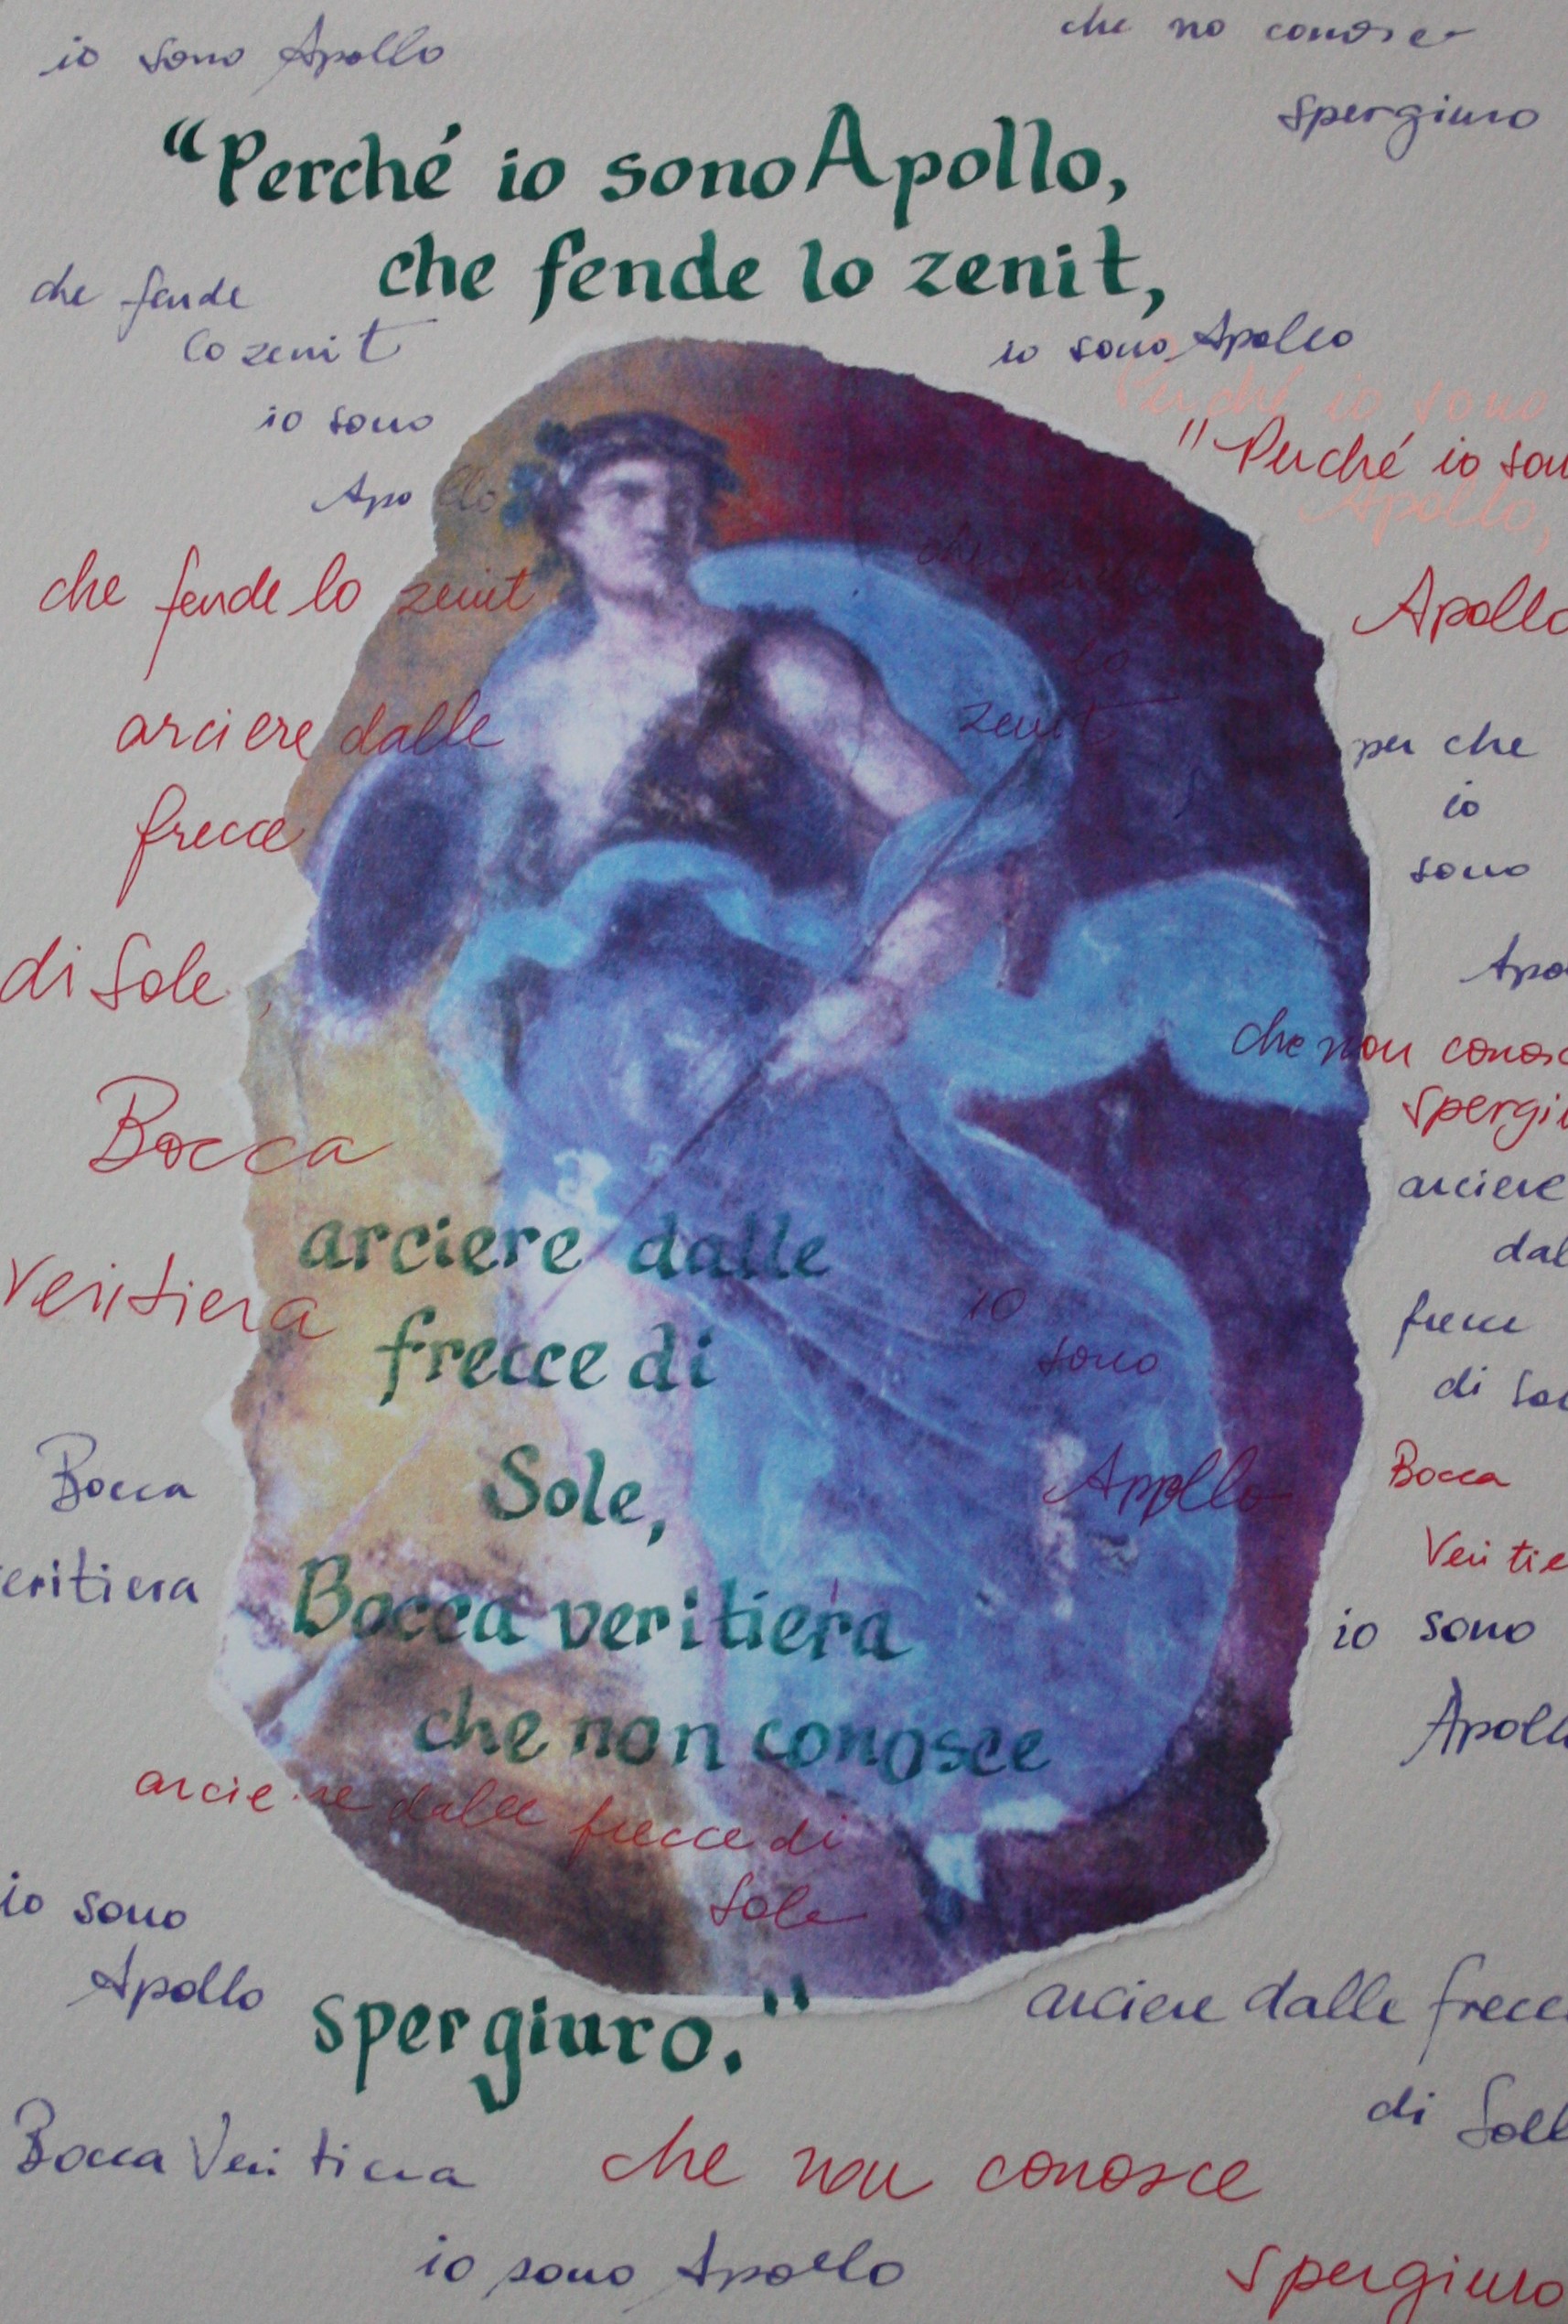 io sono Apollo
che no conosce
spergiuro
“Perché io sono Apollo,
che fende lo zenit,
che fende
lo zenit
io sono Apollo
Perché io sono
io sono
"Perché io son
Apollo
Apollo,
che fende lo zenit
Apollo
lo
zenit
arciere dalle
per che
io
frecce
sono
di Sole,
Apo
che non conosc
Bocca
spergiu
arciere
arciere dalle
dal
Veritiera
io
frecce
frecce di
sono
di Sol
Bocca
Sole,
Apollo
Bocca
eritiera
Veritie
Bocca veritiera
io sono
che non conosce
Apoll
arciere dalle frecce di
Sole
io sono
Apollo
spergiuro."
arciere dalle frecce
di Sole
Bocca Veritiera
che non conosce
io sono Apollo
spergiuro